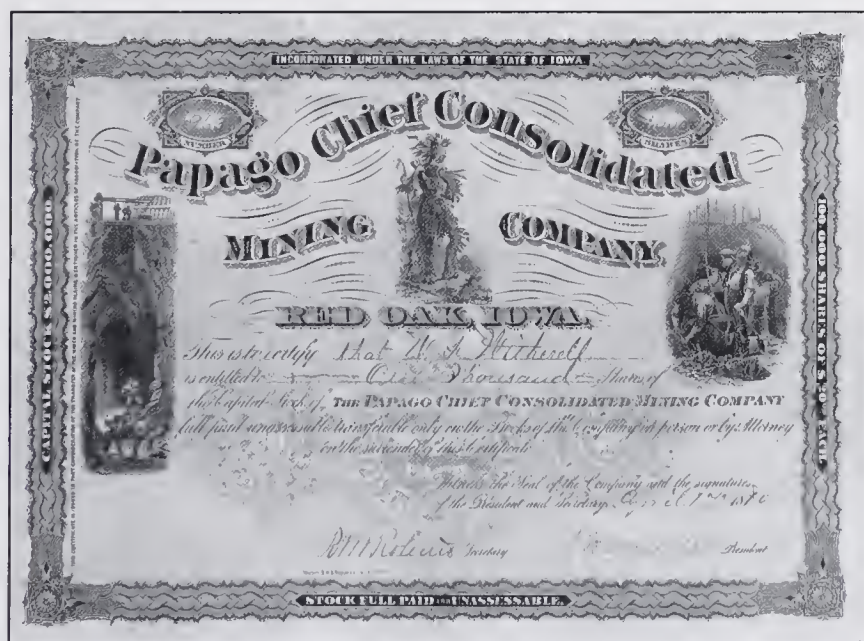 INCORPORATED UNDER THE LAWS OF THE STATE OF IOWA.
NUMBER
SHARES
Papago Chief Consolidated
MINING COMPANY
RED OAK, IOWA,
CAPITAL STOCK $2,000,000.
100,000 SHARES OF $20 EACH.
This is to certify that W. F.
is entitled to One Thousand Shares of
the Capital Stock of THE PAPAGO CHIEF CONSOLIDATED MINING COMPANY
full paid unassessable transferable only on the Books of the Company in person or by Attorney
on the surrender of this Certificate
Witness the Seal of the Company and the signatures
of the President and Secretary
Secretary
President
STOCK FULL PAID AND UNASSESSABLE.